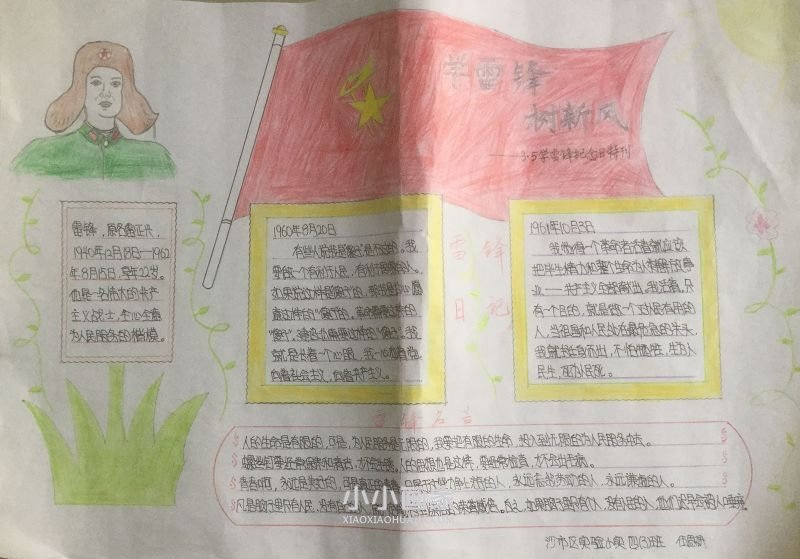 学雷锋
树新风
——3·5学雷锋纪念日特刊
雷锋，原名雷正兴，
1940年12月18日—1962
年8月15日，享年22岁。
他是一名伟大的共产
主义战士，全心全意
为人民服务的楷模。
雷锋
日记
1960年8月20日
有些人说我是傻子是不对的。我
要做一个有利于人民，有利于国家的人。
如果说这样是傻子，那我是甘心愿
意做这样的“傻子”的。革命需要这样的
“傻子”，建设也需要这样的“傻子”。我
就是长着一个心眼，我一心向着党，
向着社会主义，向着共产主义。
1961年10月3日
我觉得一个革命者活着就应该
把毕生精力和整个生命为人类解放事
业——共产主义全部献出。我活着，只
有一个目的，就是做一个对人民有用的
人，当祖国和人民处在最危急的关头，
我就挺身而出，不怕牺牲，生为人
民生，死为人民死。
雷锋名言
人的生命是有限的，可是，为人民服务是无限的，我要把有限的生命，投入到无限的为人民服务中去。
螺丝钉要经常保养和清洗，才不会生锈。人的思想也是这样，要经常检查，才不会出毛病。
青春啊，永远是美好的，可是真正的青春，只属于这些永远力争上游的人，永远忘我劳动的人，永远谦虚的人。
凡是脑子里只有人民、没有自己的
小小画家
XIAOXIAOHUAJIA
沙市区实验小学 四(3)班